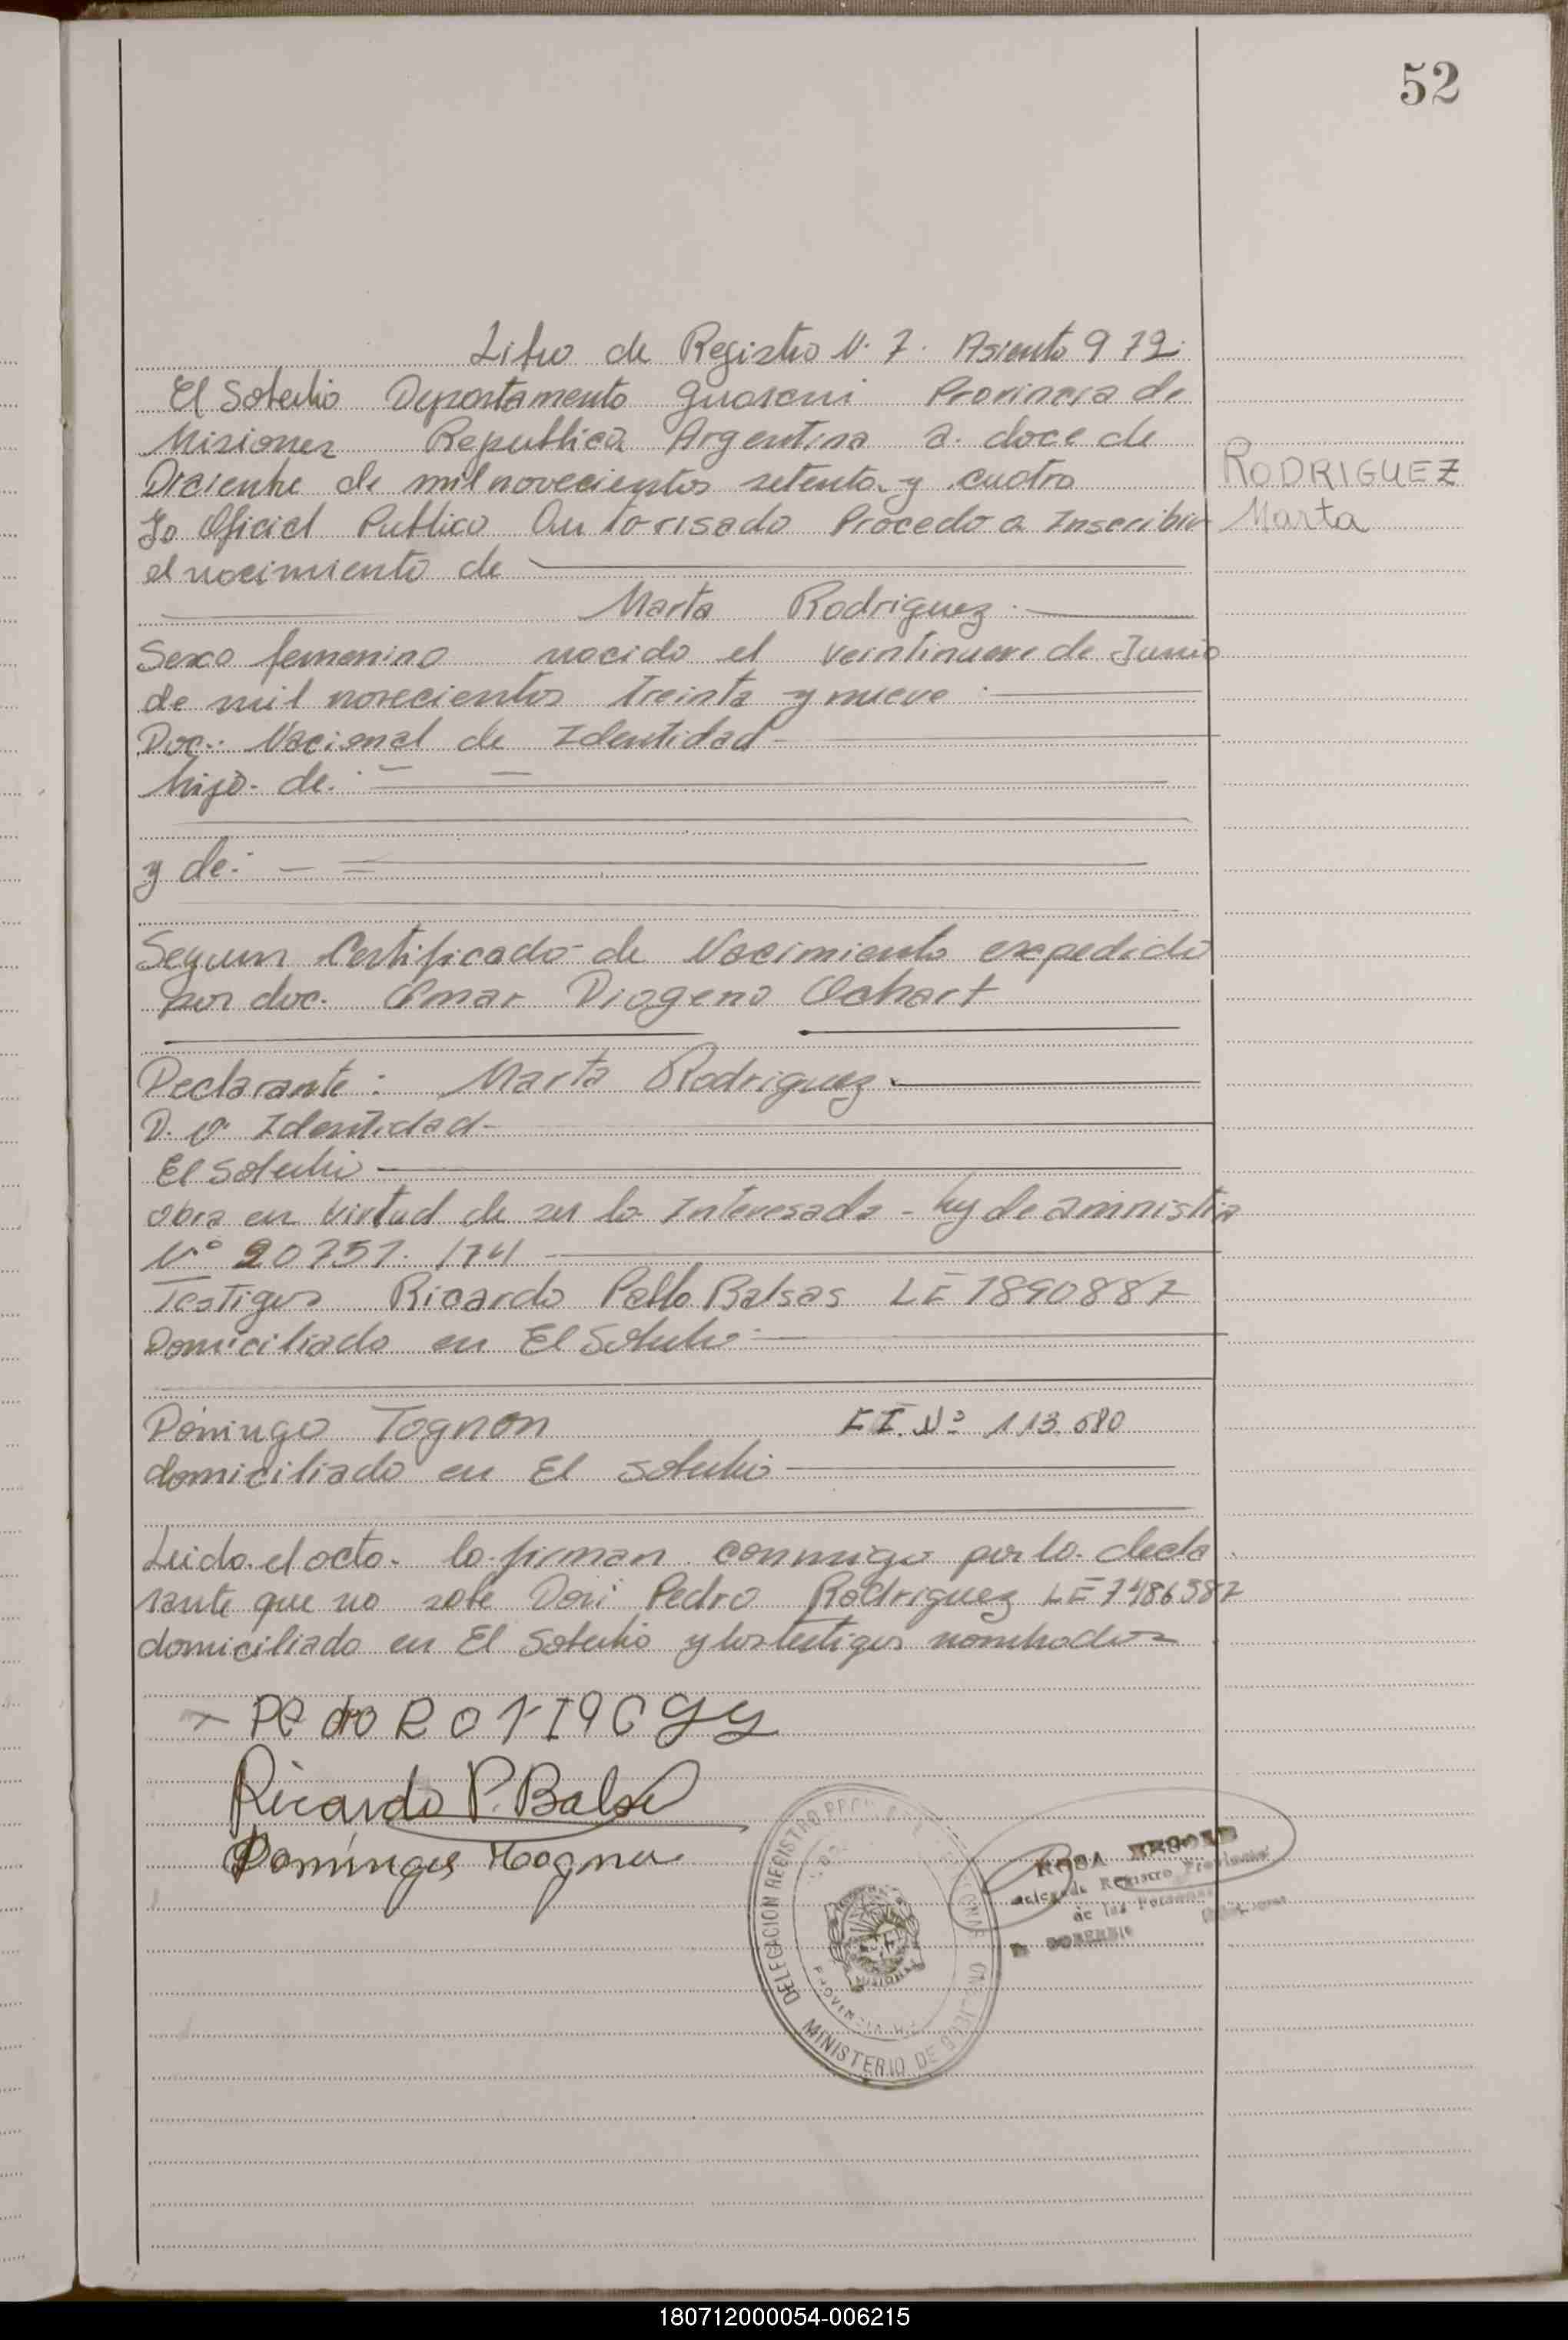 52
Libro de Registro N. 7. Asiento 972.
El Soberbio Departamento Guarani Provincia de
Misiones Republica Argentina a. doce de
Diciembre de mil novecientos setenta y cuatro
RODRIGUEZ
Yo Oficial Publico Autorisado Procedo a Inscribir
Marta
el nacimiento de
Marta Rodriguez.
Sexo femenino nacido el veintinueve de Junio
de mil novecientos treinta y nueve.
Doc. Nacional de Identidad
hijo de:
y de:
Segun Certificado de Nacimiento expedido
por doc. Omar Diogeno Ochart
Declarante: Marta Rodriguez.
D. N. Identidad
El Soberbio
Obra en virtud de ser la Interesada - Ley de amnistia
N° 20751. /74
Testigos Ricardo Pablo Balsas LE 7890887
Domiciliado en El Soberbio
Domingo Tognon N° 113.680
domiciliado en El Soberbio
Leida el acta lo firman conmigo por la decla
rante que no sabe Don Pedro Rodriguez LE 7486587
domiciliado en El Soberbio y los testigos nombrados
Pedro
Ricardo P. Balsa
DELEGACION REGISTRO
PROVINCIA
MINISTERIO DE
ROSA
Delegada Registro Provincial
de las Personas
SOBERBIO
180712000054-006215